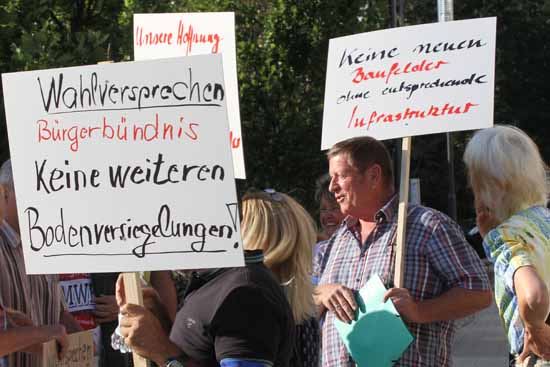 Wahlversprechen
Bürgerbündnis
Keine weiteren
Bodenversiegelungen!
Unsere Hoffnung
Keine neuen
Baufelder
ohne entsprechende
Infrastruktur